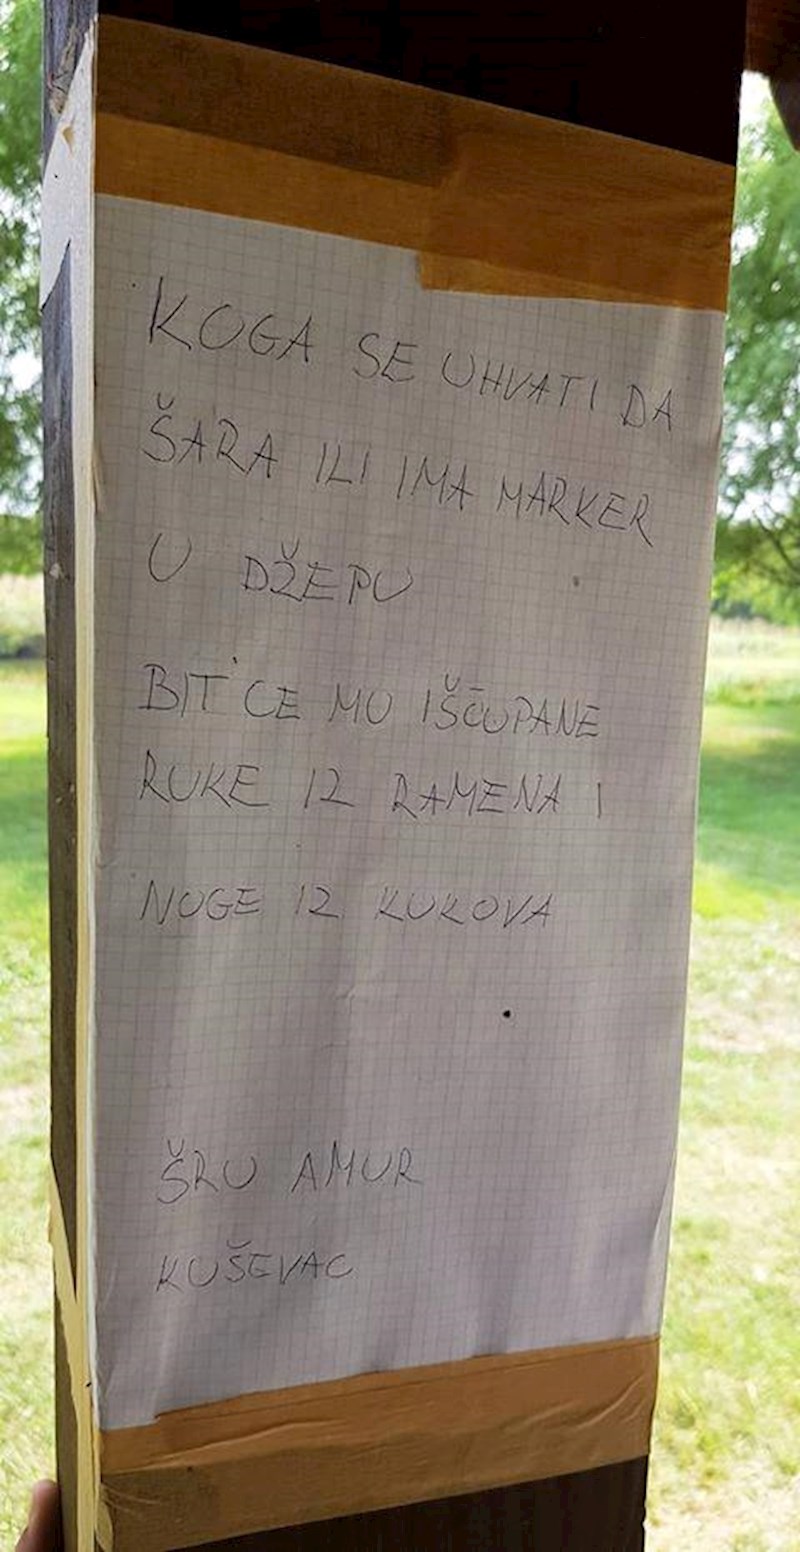 KOGA SE UHVATI DA
ŠARA ILI IMA MARKER
U DŽEPU
BIT ĆE MU IŠČUPANE
RUKE IZ RAMENA I
NOGE IZ KUKOVA
ŠRU AMUR
KUŠEVAC